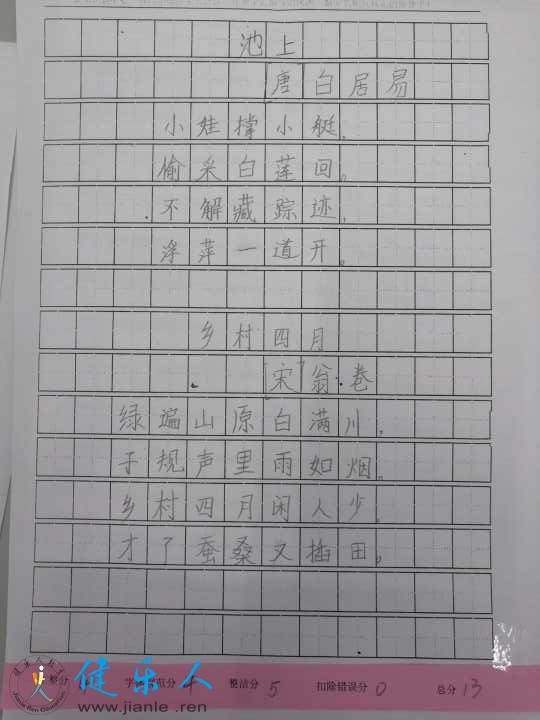 池上
[唐]白居易
小娃撑小艇，
偷采白莲回。
不解藏踪迹，
浮萍一道开。
乡村四月
[宋]翁卷
绿遍山原白满川，
子规声里雨如烟。
乡村四月闲人少，
才了蚕桑又插田。
整洁分 5 扣除错误分 0 总分 13
健乐人
www.jianle .ren